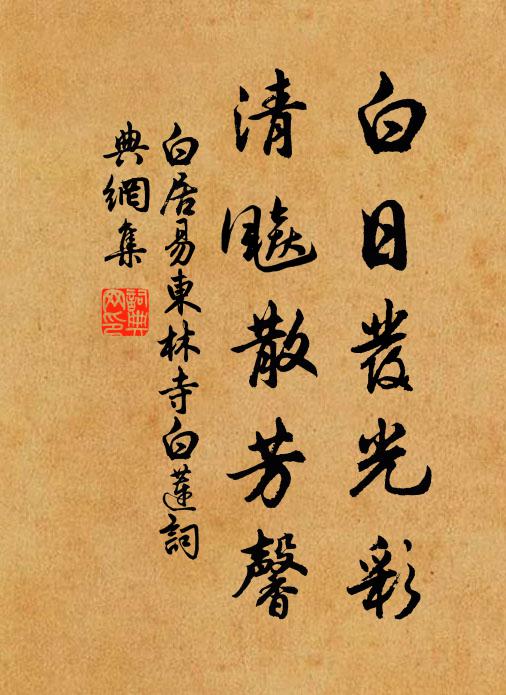 白日發光彩
清飈散芳馨
白居易東林寺白蓮詞
典網集
詞典
网印